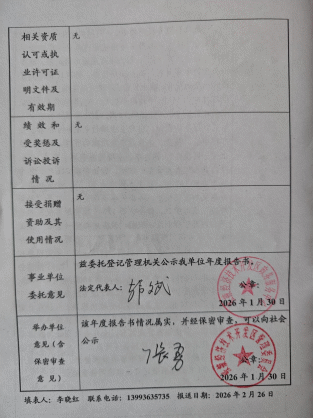 相关资质
认可或执
业许可证
明文件及
有效期
无
绩 效 和
受奖惩及
诉讼投诉
情 况
无
接受捐赠
资助及其
使用情况
无
事业单位
委托意见
兹委托登记管理机关公示我单位年度报告书。
法定代表人：
公章：
2026 年 1 月 30 日
举办单位
意见（含
保密审查
意 见）
该年度报告书情况属实，并经保密审查，可以向社会
公示
公章：
2026 年 1 月 30 日
填表人：李晓红 联系电话：13993635735 报送日期：2026 年 2 月 26 日